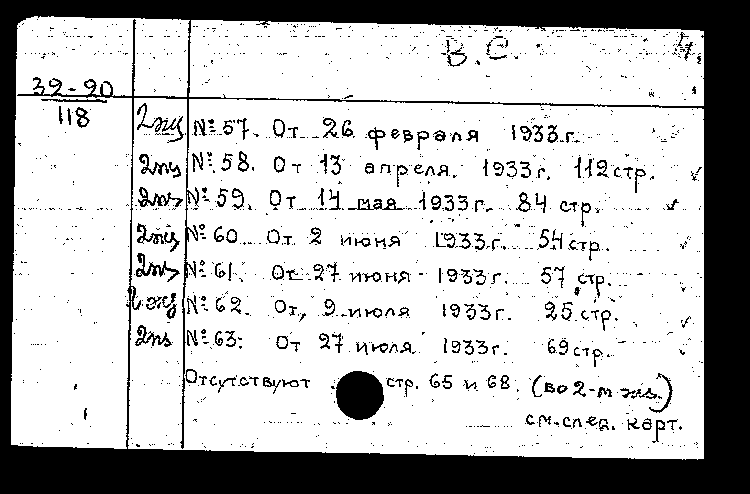 В.С. 4.
32-20
118
2экз №57. От 26 февраля 1933г.
2экз №58. От 13 апреля. 1933г. 112стр.
2экз №59. От 14 мая 1933г. 84 стр.
2экз №60 От 2 июня 1933г. 54стр.
2экз №61. От 27 июня 1933г. 57 стр.
2экз №62. От, 9 июля 1933г. 25 стр.
2экз №63: От 27 июля 1933г. 69стр.
Отсутствуют стр. 65 и 68. (во 2-м экз.)
см.след. карт.